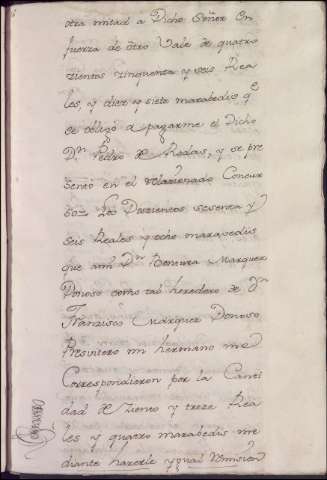 otra mitad a Dicho Señor en
fuerza de otro Vale de quatro
zientos zinquenta y seis Rea
les, y diez y siete marabedis q.e
se obligo a pagarme el Dicho
D.n Pedro de Rodas, y se pre
sento en el relacionado Concur
so= Los Doszientos sesenta y
seis Reales y ocho marabedis
que a mi D.n Bentura Marquez
Donoso como tal heredero de D.n
Francisco Marquez Donoso
Presvitero mi hermano me
Correspondieron por la Canti
dad de ziento y treze Rea
les y quatro marabedis me
diante hazerle ygual Remision